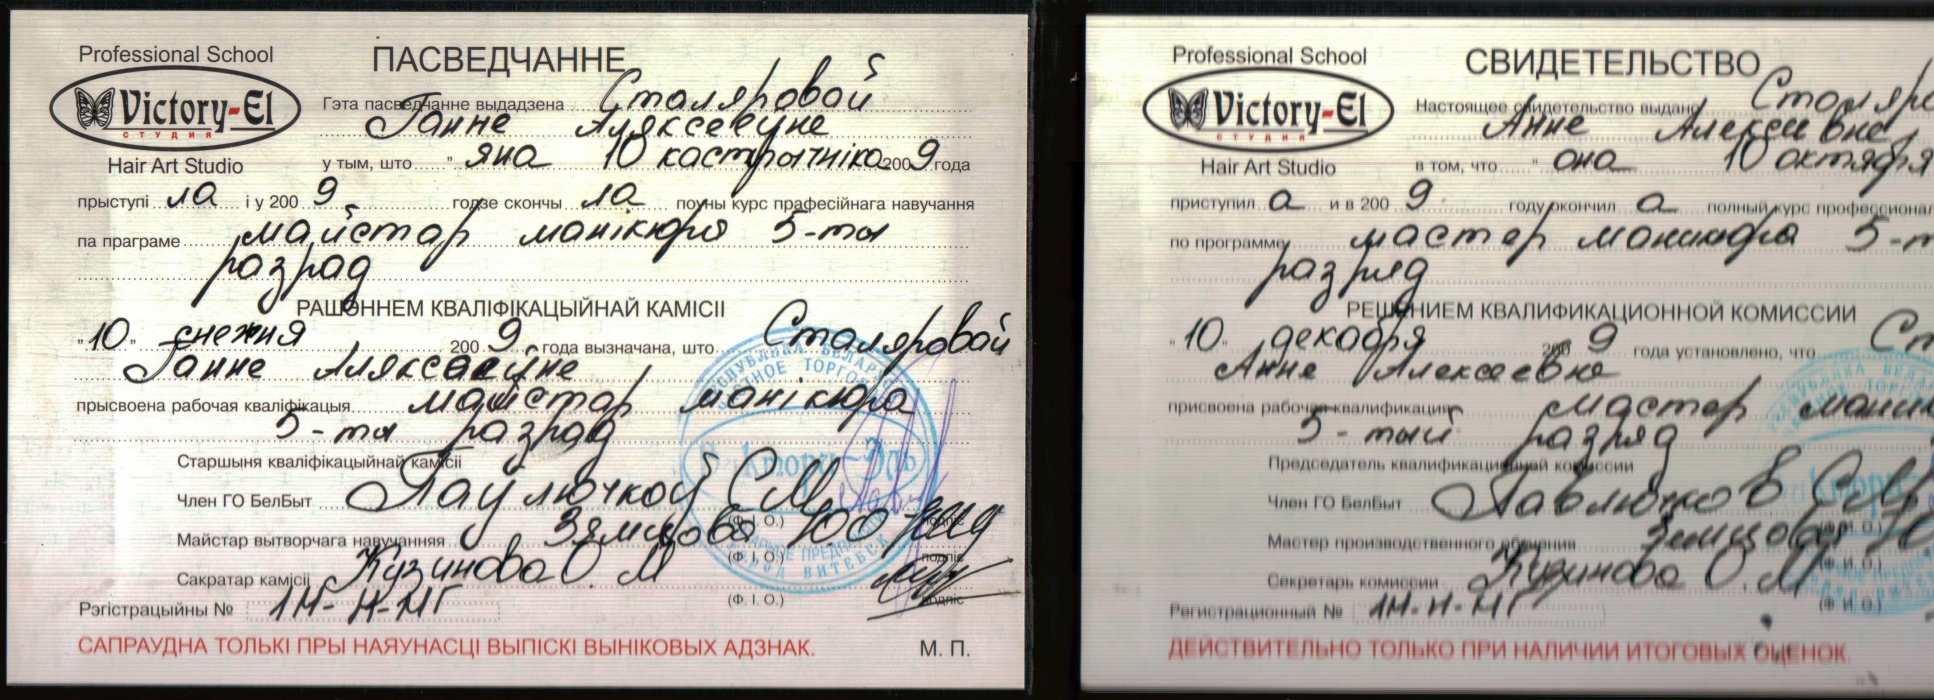 Professional School
ПАСВЕДЧАННЕ
Victory-El
СТУДИЯ
Hair Art Studio
Гэта пасведчанне выдадзена Сталяровай
Ганне Аляксееўне
у тым, што " яна 10 кастрычніка 2009 года
прыступі ла і у 200 9 годзе скончы ла поўны курс прафесійнага навучання
па праграме майстар манікюра 5-ты
разрад
РАШЭННЕМ КВАЛІФІКАЦЫЙНАЙ КАМІСІІ
"10" снежня 200 9 года вызначана, што Сталяровай
Ганне Аляксееўне
прысвоена рабочая кваліфікацыя майстар манікюра
5-ты разрад
Старшыня кваліфікацыйнай камісіі
Член ГО БелБыт Паўлючкоў С М
(Ф. І. О.) подпіс
Майстар вытворчага навучання Зямцова Ю
(Ф. І. О.) подпіс
Сакратар камісіі Кузинова О. М
(Ф. І. О.) подпіс
Рэгістрацыйны № 1М-Н-МГ
САПРАЎДНА ТОЛЬКІ ПРЫ НАЯЎНАСЦІ ВЫПІСКІ ВЫНІКОВЫХ АДЗНАК. М. П.
Professional School
СВИДЕТЕЛЬСТВО
Victory-El
СТУДИЯ
Hair Art Studio
Настоящее свидетельство выдано Столяро
Анне Алексеевне
в том, что " она 10 октября
приступил а и в 200 9 году окончил а полный курс профессионал
по программе мастер маникюра 5-т
разряд
РЕШЕНИЕМ КВАЛИФИКАЦИОННОЙ КОМИССИИ
"10" декабря 200 9 года установлено, что Ст
Анне Алексеевне
присвоена рабочая квалификация мастер маник
5-тый разряд
Председатель квалификационной комиссии
Член ГО БелБыт Павлючков С М
(Ф. И. О.)
Мастер производственного обучения Земцова Ю
(Ф. И. О.)
Секретарь комиссии Кузинова О. М
(Ф. И. О.)
Регистрационный № 1М-Н-МГ
ДЕЙСТВИТЕЛЬНО ТОЛЬКО ПРИ НАЛИЧИИ ИТОГОВЫХ ОЦЕНОК.